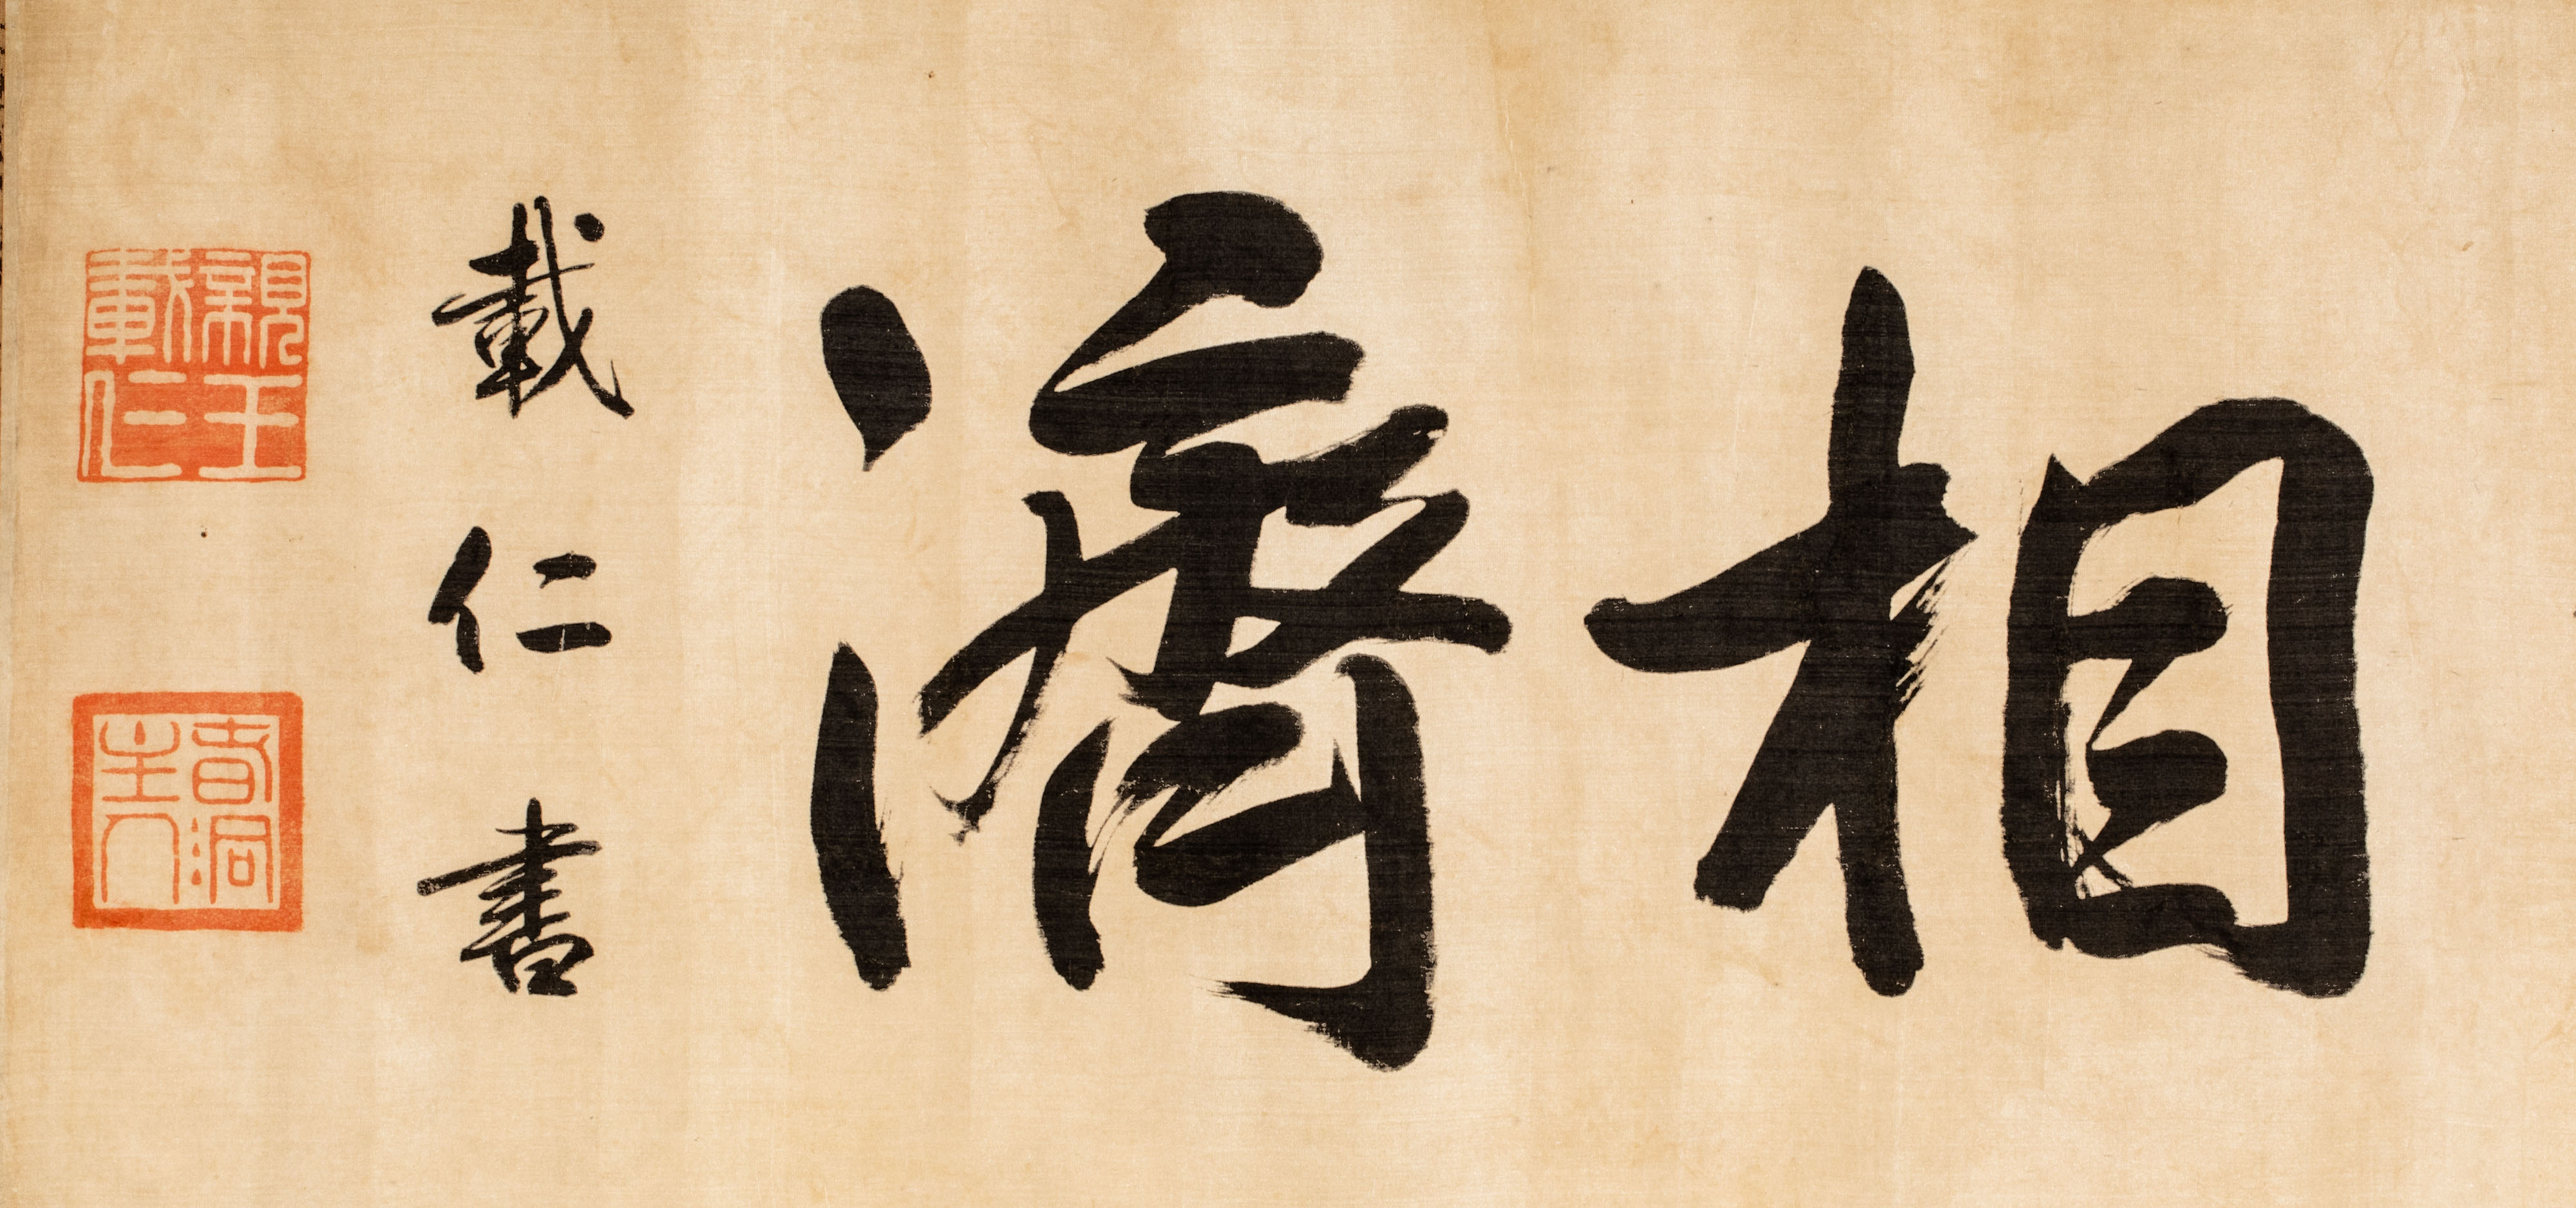 相濟
載仁書
親王載仁
春洞主人